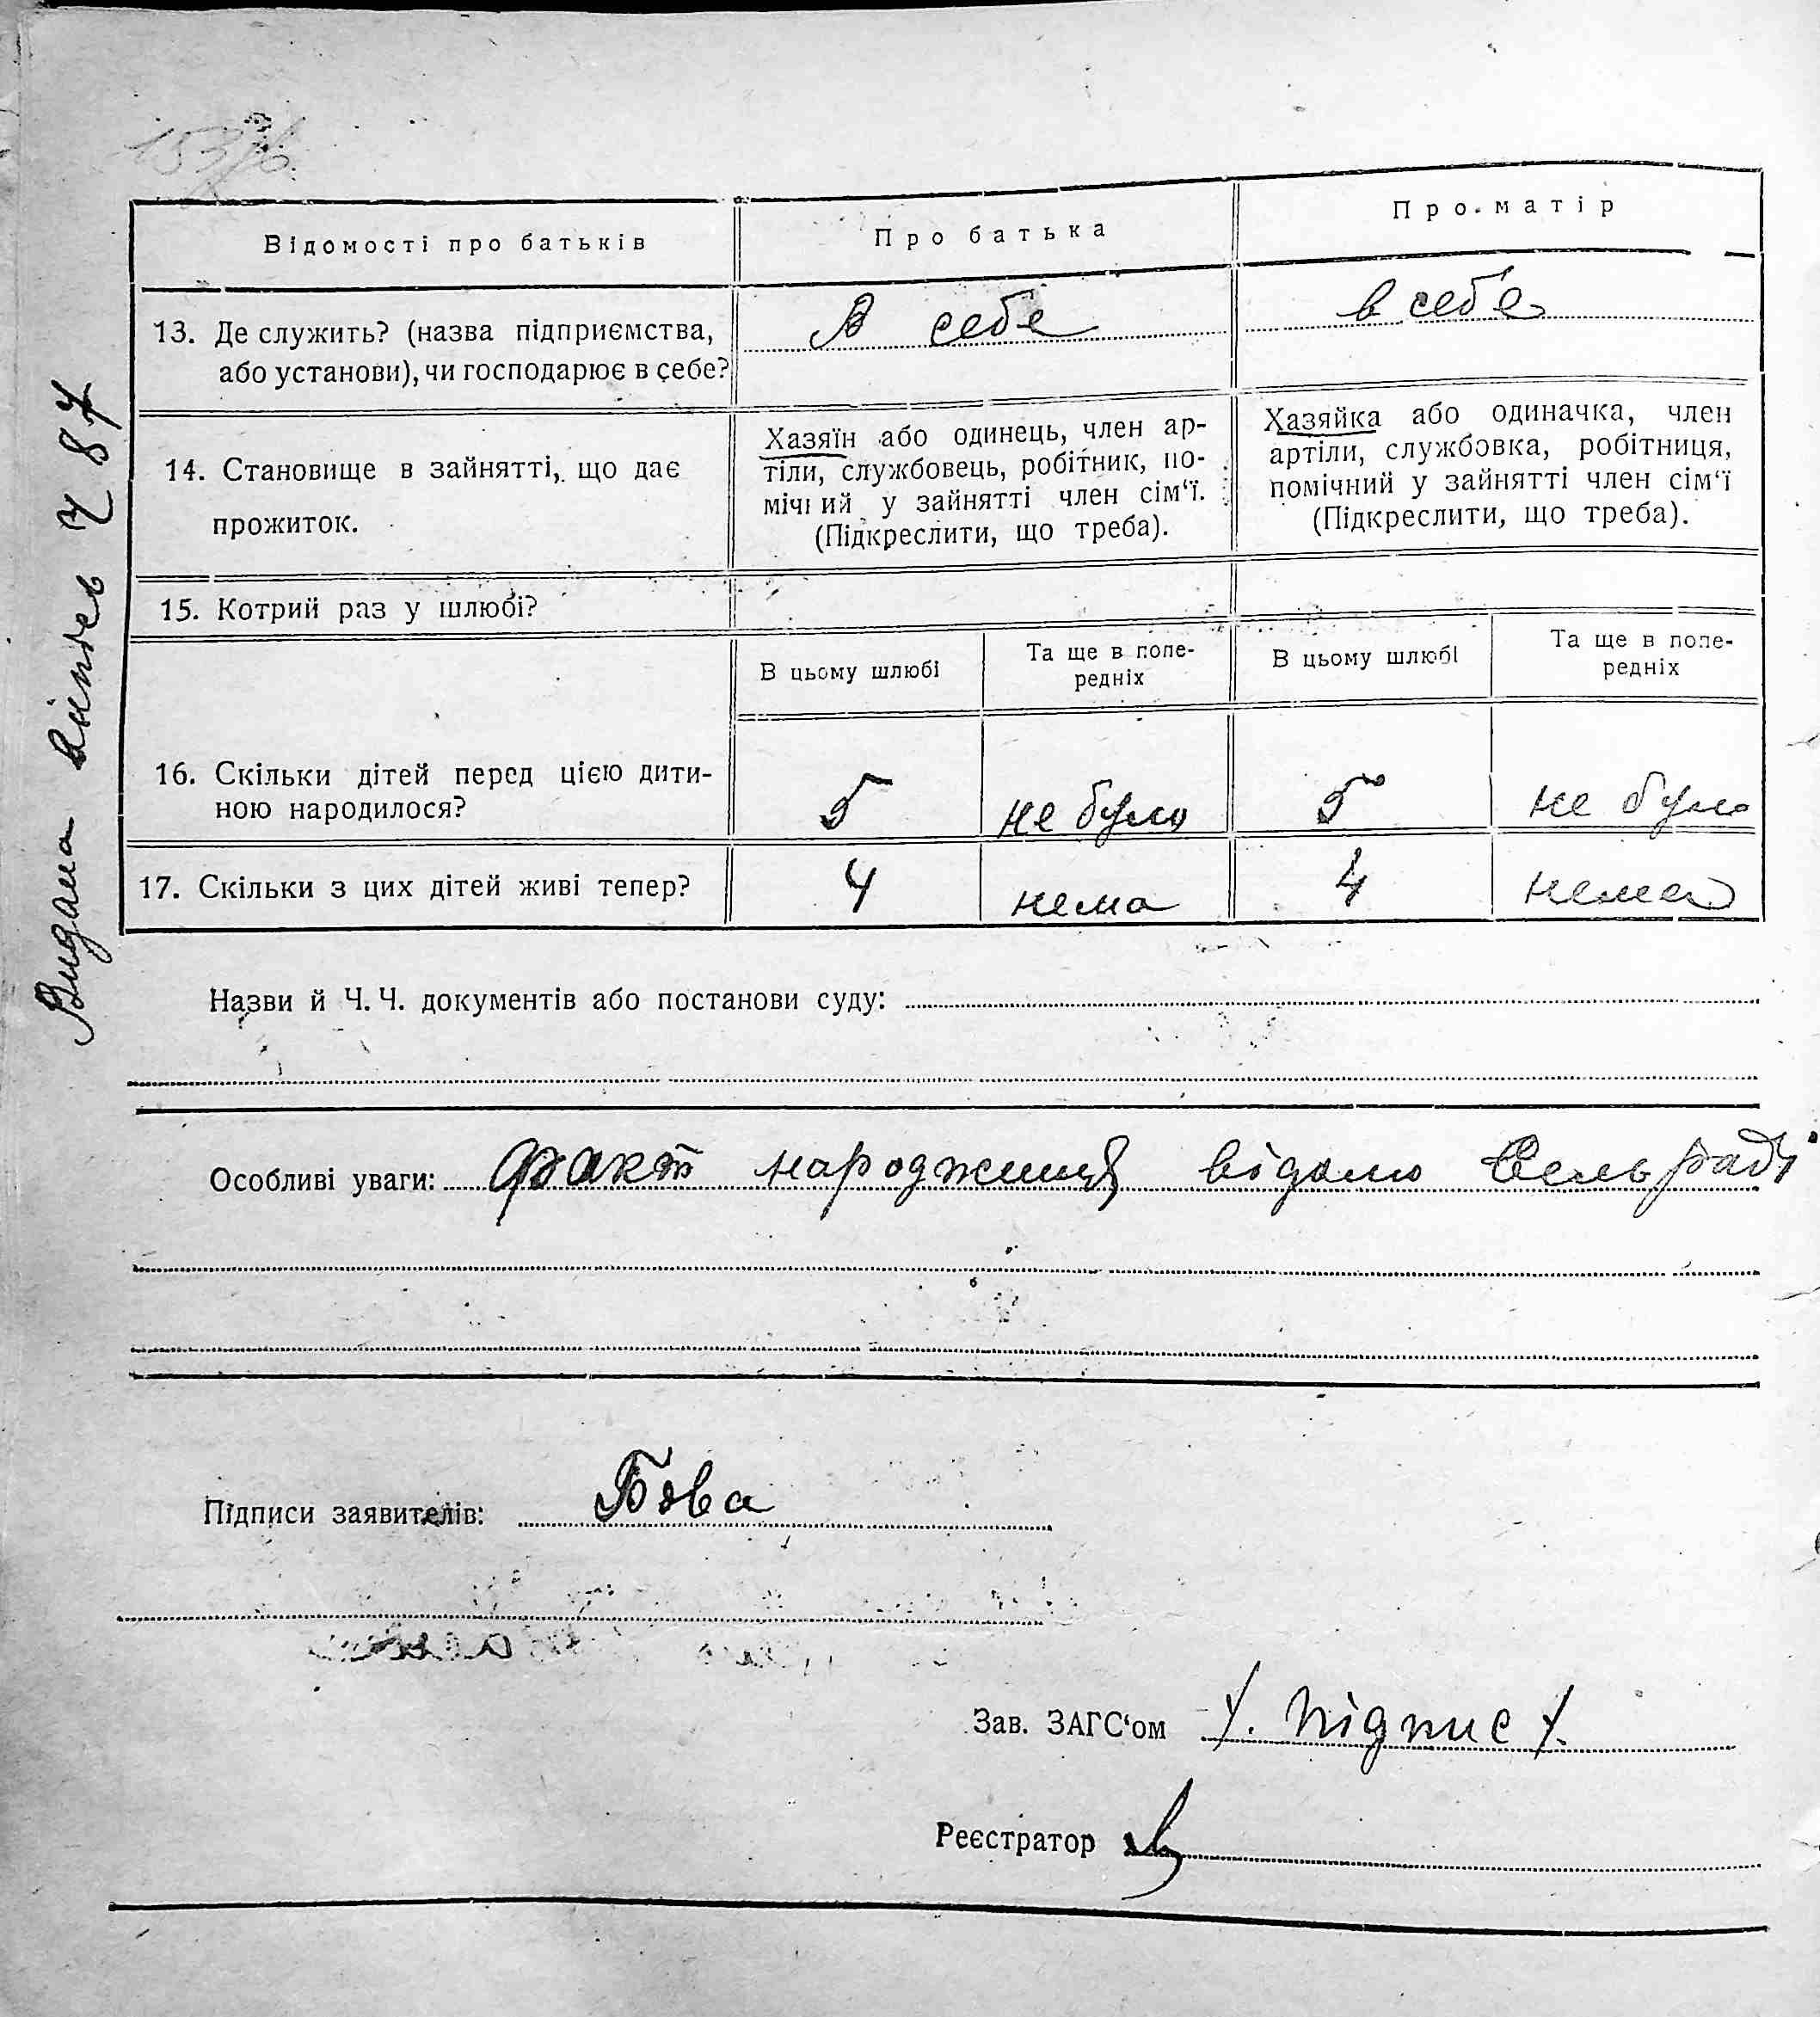 Відомості про батьків
Про батька
Про матір
13. Де служить? (назва підприємства,
або установи), чи господарює в себе?
В себе
в себе
14. Становище в зайнятті, що дає
прожиток.
Хазяїн або одинець, член ар-
тіли, службовець, робітник, по-
мічний у зайнятті член сім‘ї.
(Підкреслити, що треба).
Хазяйка або одиначка, член
артіли, службовка, робітниця,
помічний у зайнятті член сім‘ї
(Підкреслити, що треба).
15. Котрий раз у шлюбі?
В цьому шлюбі
Та ще в попе-
редніх
В цьому шлюбі
Та ще в попе-
редніх
16. Скільки дітей перед цією дити-
ною народилося?
5
не було
5
не було
17. Скільки з цих дітей живі тепер?
4
нема
4
нема
Видана Ч 87
Назви й Ч. Ч. документів або постанови суду:
Особливі уваги: факт народження відомо Сельраді
Підписи заявителів: Бова
Зав. ЗАГС‘ом /. підпис /.
Реєстратор